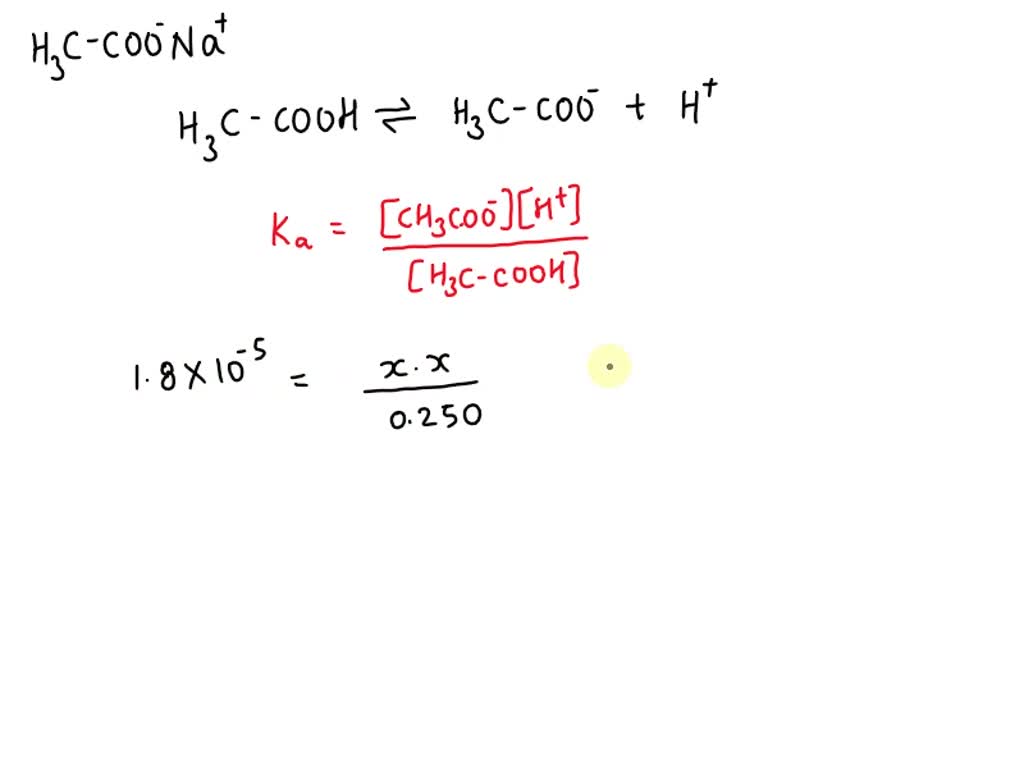 H₃C-COO⁻Na⁺
H₃C-COOH ⇌ H₃C-COO⁻ + H⁺
Kₐ = [CH₃COO⁻][H⁺] / [H₃C-COOH]
1.8×10⁻⁵ = x·x / 0.250